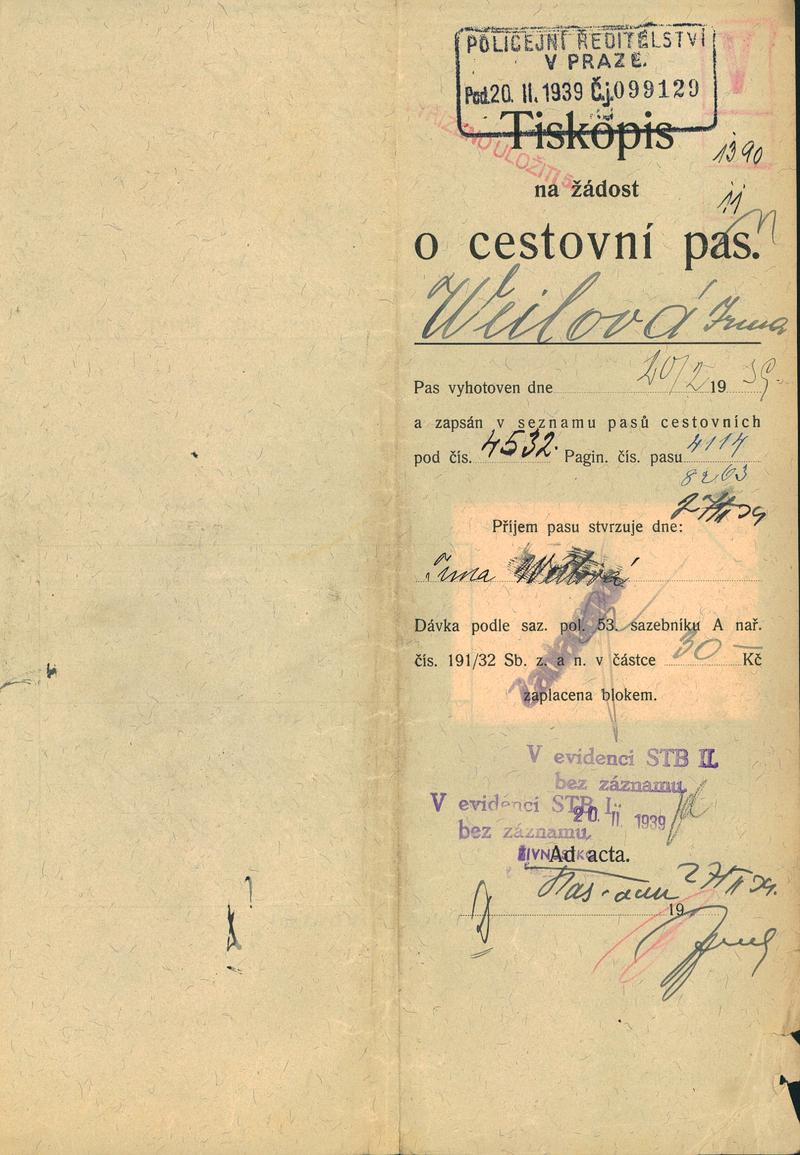 POLICEJNÍ ŘEDITELSTVÍ
V PRAZE.
Pod. 20. II. 1939 Č.j. 099129
V
VYŘÍZENO ULOŽITI
Tiskopis
1390
na žádost
11
o cestovní pas.
Weilová Irma
Pas vyhotoven dne 20/2 19 39.
a zapsán v seznamu pasů cestovních
pod čís. 4532. Pagin. čís. pasu 4114
8263
27/II 39
Příjem pasu stvrzuje dne:
Irma Weilová
Dávka podle saz. pol. 53. sazebníku A nař.
čís. 191/32 Sb. z. a n. v částce 30 — Kč
zaplacena blokem.
V evidenci STB II.
bez záznamu.
V evidenci STB I.
20. II 1939
bez záznamu.
Ad acta.
27/II 39.
19